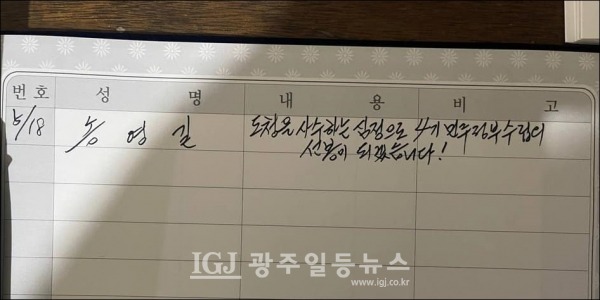 번호 성명 내용 비고
5/18 송영길 도청을 사수하는 심정으로 4기 민주정부수립의
선봉이 되겠습니다!
IGJ 광주일등뉴스
www.igj.co.kr